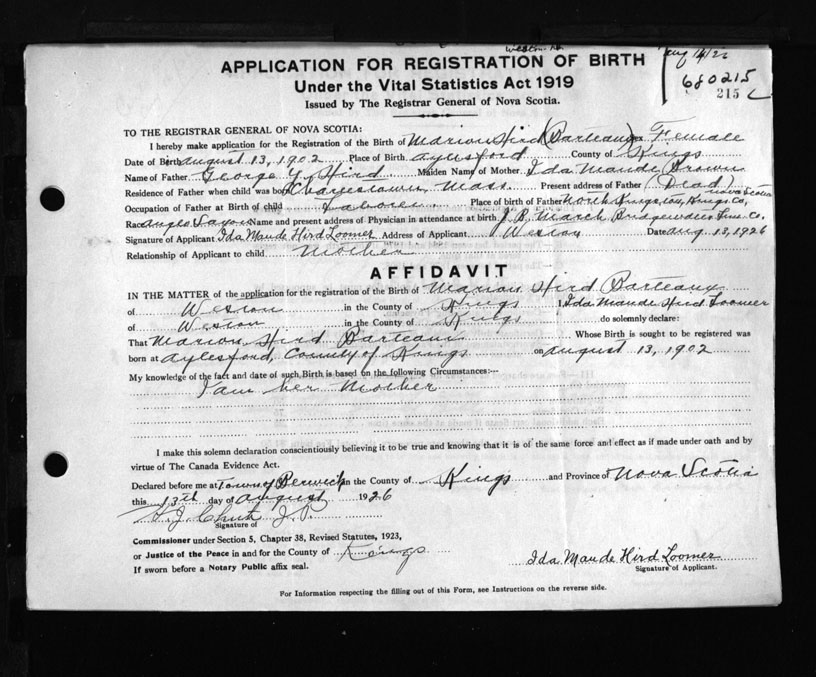 Weston NS
Aug 14/26
APPLICATION FOR REGISTRATION OF BIRTH
680215
Under the Vital Statistics Act 1919
215
Issued by The Registrar General of Nova Scotia.
TO THE REGISTRAR GENERAL OF NOVA SCOTIA:
I hereby make application for the Registration of the Birth of Marion Hird (Barteaux) Female
Date of Birth August 13, 1902 Place of Birth Aylesford County of Kings
Name of Father George Y. Hird Maiden Name of Mother Ida Maude Brown
Residence of Father when child was born Charlestown Mass. Present address of Father (Dead)
Nova Scotia
Occupation of Father at Birth of child Laborer Place of birth of Father North Kingston, Kings Co,
Race Anglo Saxon Name and present address of Physician in attendance at birth J. B. March Bridgewater Lun. Co.
Signature of Applicant Ida Maude Hird Loomer Address of Applicant Weston Date Aug. 13, 1926
Relationship of Applicant to child Mother
AFFIDAVIT
IN THE MATTER of the application for the registration of the Birth of Marion Hird Barteaux
of Weston in the County of Kings I, Ida Maude Hird Loomer
of Weston in the County of Kings do solemnly declare:
That Marion Hird Barteaux Whose Birth is sought to be registered was
born at Aylesford, County of Kings on August 13, 1902
My knowledge of the fact and date of such Birth is based on the following Circumstances:—
I am her Mother
I make this solemn declaration conscientiously believing it to be true and knowing that it is of the same force and effect as if made under oath and by
virtue of The Canada Evidence Act.
Declared before me at Town of Berwick in the County of Kings and Province of Nova Scotia
this 13th day of August 1926
J. Chute J.P.
Signature of
Commissioner under Section 5, Chapter 38, Revised Statutes, 1923,
or Justice of the Peace in and for the County of Kings
Ida Maude Hird Loomer
If sworn before a Notary Public affix seal.
Signature of Applicant.
For Information respecting the filling out of this Form, see Instructions on the reverse side.